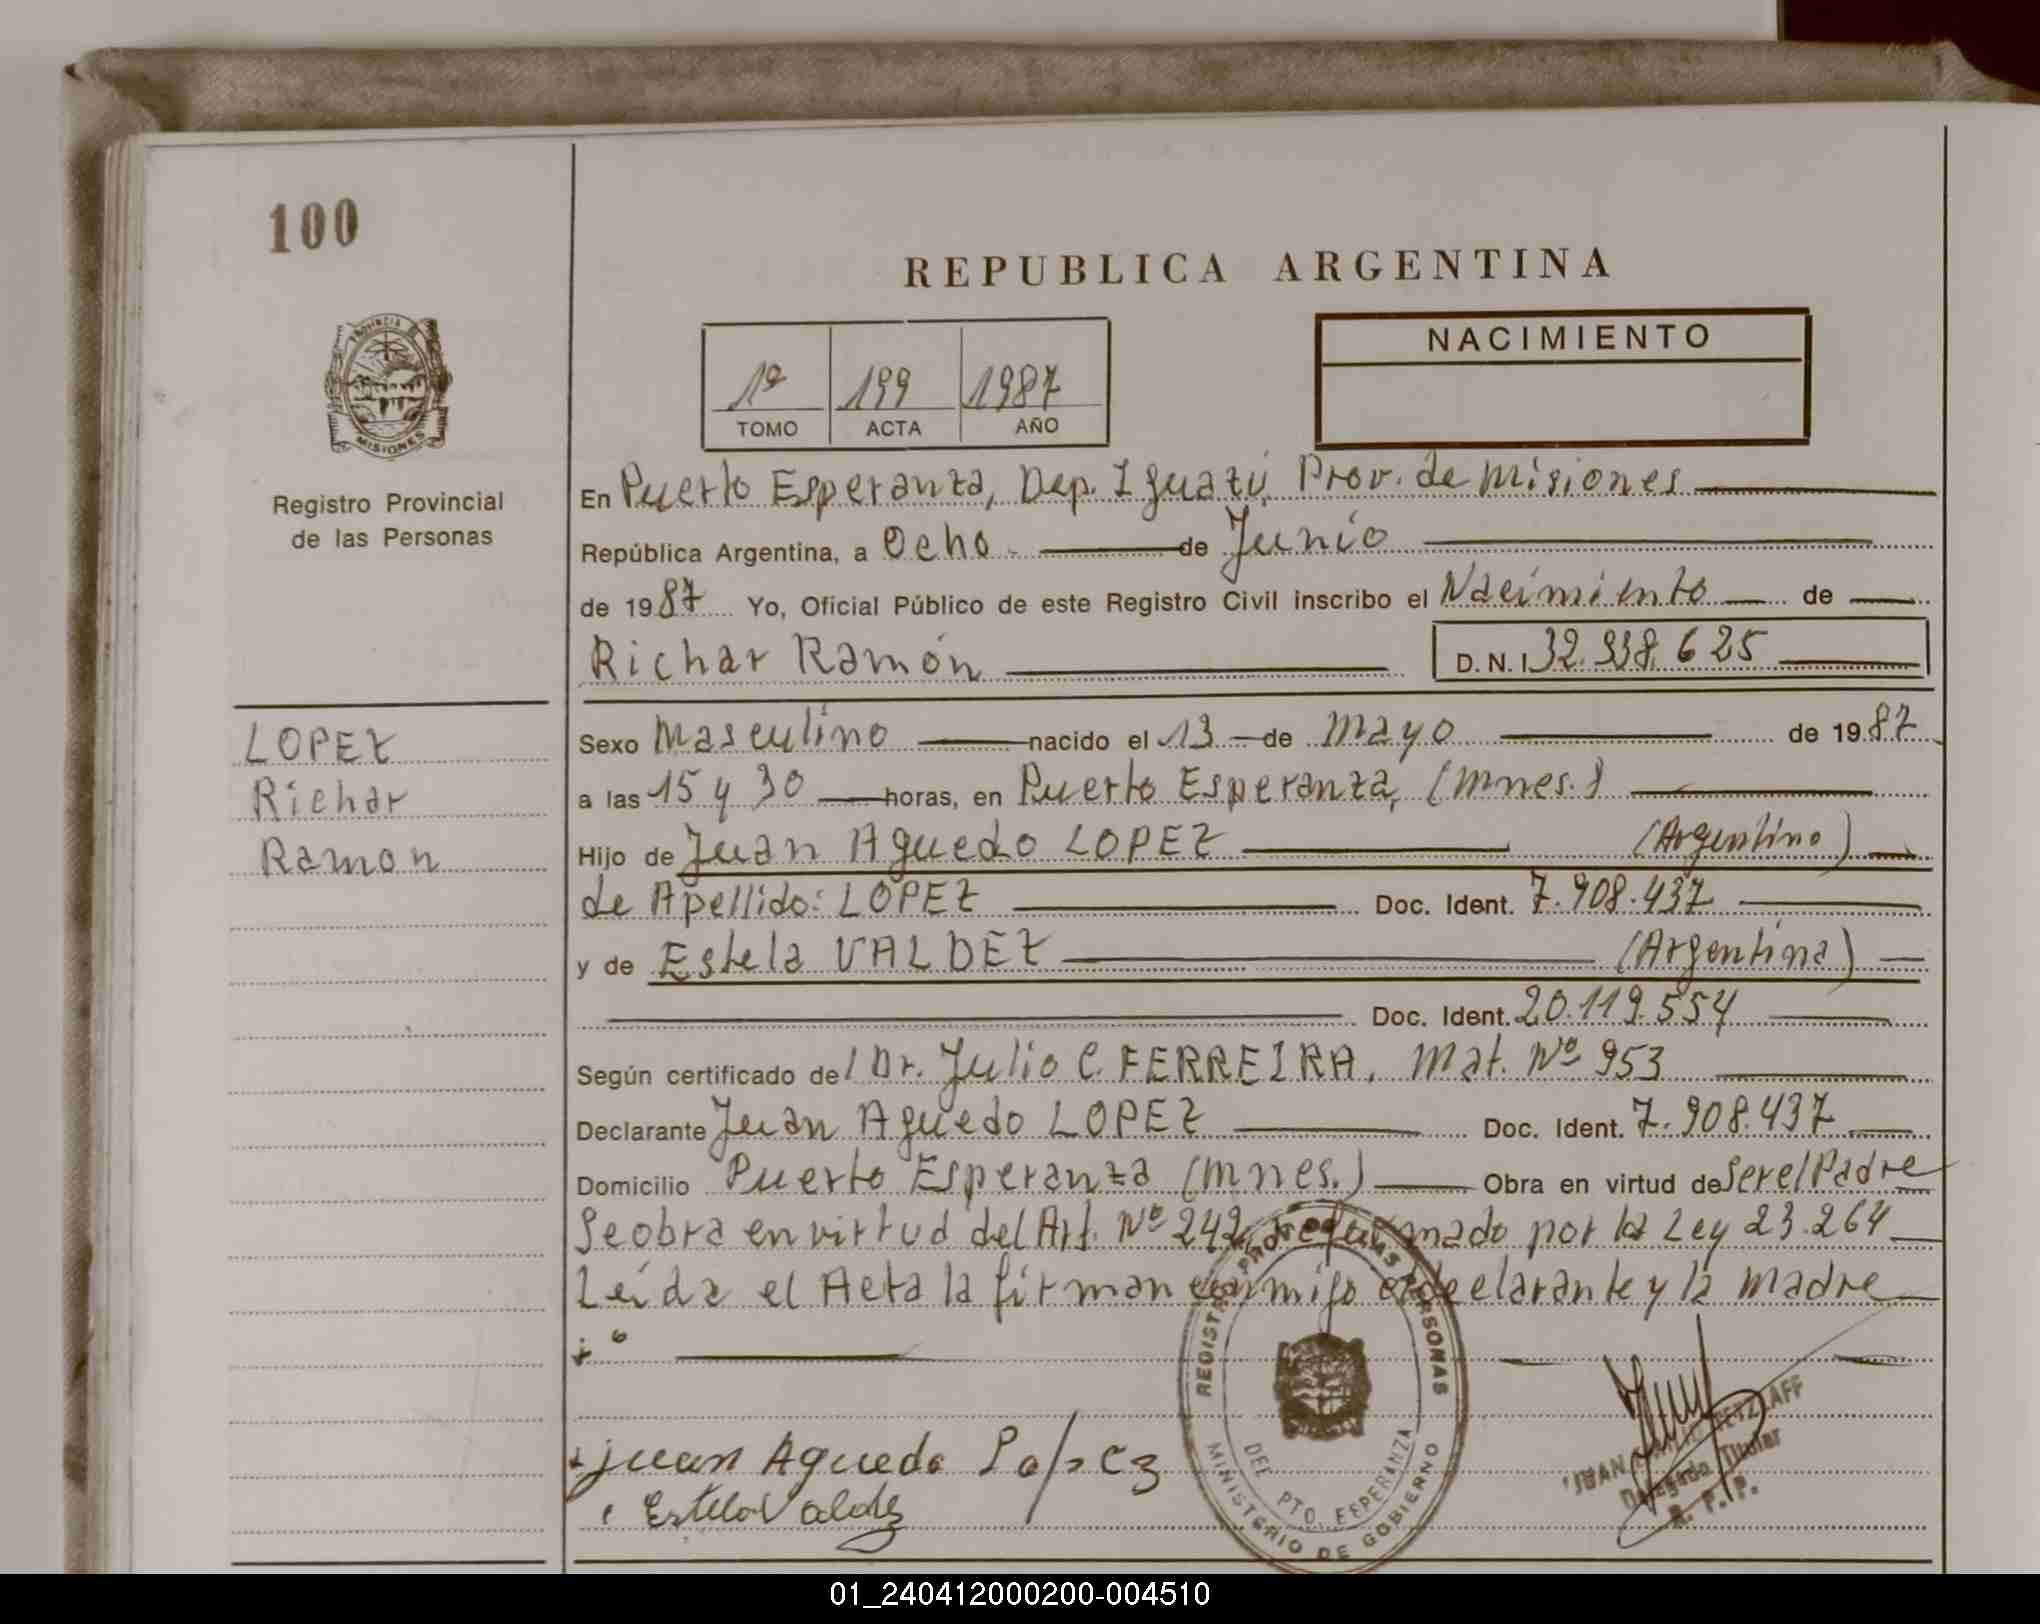 100
REPUBLICA ARGENTINA
PROVINCIA DE
MISIONES
Registro Provincial
de las Personas
1º 199 1987
TOMO ACTA AÑO
NACIMIENTO
En Puerto Esperanza, Dep. Iguazú Prov. de Misiones
República Argentina, a Ocho de Junio
de 1987 Yo, Oficial Público de este Registro Civil inscribo el Nacimiento de
Richar Ramón D.N.I 32.938.625
LOPEZ
Richar
Ramon
Sexo Masculino nacido el 13 de Mayo de 1987
a las 15 y 30 horas, en Puerto Esperanza, (Mnes.)
Hijo de Juan Aguedo LOPEZ (Argentino)
de Apellido: LOPEZ Doc. Ident. 7.908.437
y de Estela VALDEZ (Argentina)
Doc. Ident. 20.119.554
Según certificado del Dr. Julio C. FERREIRA, Mat. Nº 953
Declarante Juan Aguedo LOPEZ Doc. Ident. 7.908.437
Domicilio Puerto Esperanza (Mnes.) Obra en virtud de Ser el Padre
Se obra en virtud del Art. Nº 242, reformado por la Ley 23.264
Leida el Acta la firman conmigo el declarante y la Madre
Juan Aguedo Lopez
Estela Valdez
REGISTRO PROV. DE LAS PERSONAS
DEL PTO. ESPERANZA
MINISTERIO DE GOBIERNO
JUAN
Delegado Titular
R. P. P.
01_240412000200-004510